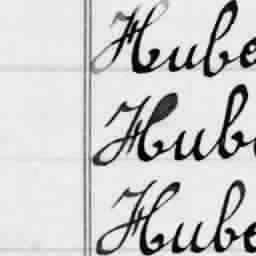 Hube
Hub
Hube